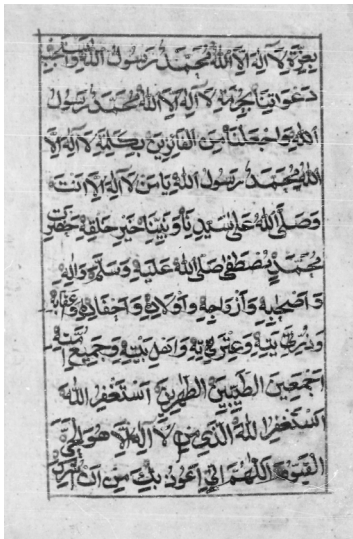 بِعِزَّةِ لَا اِلٰهَ اِلَّا اللهُ مُحَمَّدٌ رَسُولُ اللهِ وَاسْتَجِبْ
دَعَوَاتِنَا بِحُرْمَةِ لَا اِلٰهَ اِلَّا اللهُ مُحَمَّدٌ رَسُولُ
اللهِ وَاجْعَلْنَا مِنَ الْفَائِزِينَ بِكَلِمَةِ لَا اِلٰهَ اِلَّا
اللهُ مُحَمَّدٌ رَسُولُ اللهِ يَا مَنْ لَا اِلٰهَ اِلَّا اَنْتَ
وَصَلَّى اللهُ عَلَى سَيِّدِنَا وَنَبِيِّنَا خَيْرِ خَلْقِهِ حَضْرَتِ
مُحَمَّدٍ مُصْطَفٰى صَلَّى اللهُ عَلَيْهِ وَسَلَّمَ وَاٰلِهِ
وَاَصْحَابِهِ وَاَزْوَاجِهِ وَاَوْلَادِهِ وَاَحْفَادِهِ
وَذُرِّيَّتِهِ وَعِتْرَتِهِ وَاَهْلِ بَيْتِهِ وَجَمِيعِ اُمَّتِهِ
اَجْمَعِينَ الطَّيِّبِينَ الطَّهِرِينَ اَسْتَغْفِرُ اللهَ
اَسْتَغْفِرُ اللهَ الَّذِي لَا اِلٰهَ اِلَّا هُوَ الْحَيُّ
الْقَيُّومُ اَللّٰهُمَّ اِنِّي اَعُوذُ بِكَ مِنْ اَنْ